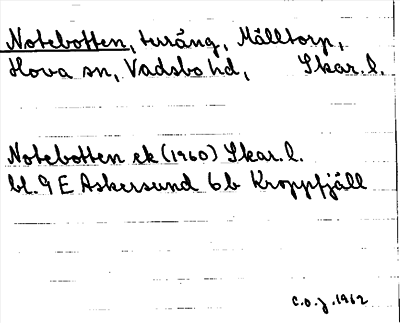 Notebotten, turäng, Mälltorp,
Hova sn, Vadsbo hd, Skar. l.
Notebotten ek (1960) Skar. l.
bl. 9 E Askersund 6b Kroppfjäll
C.O.J. 1962